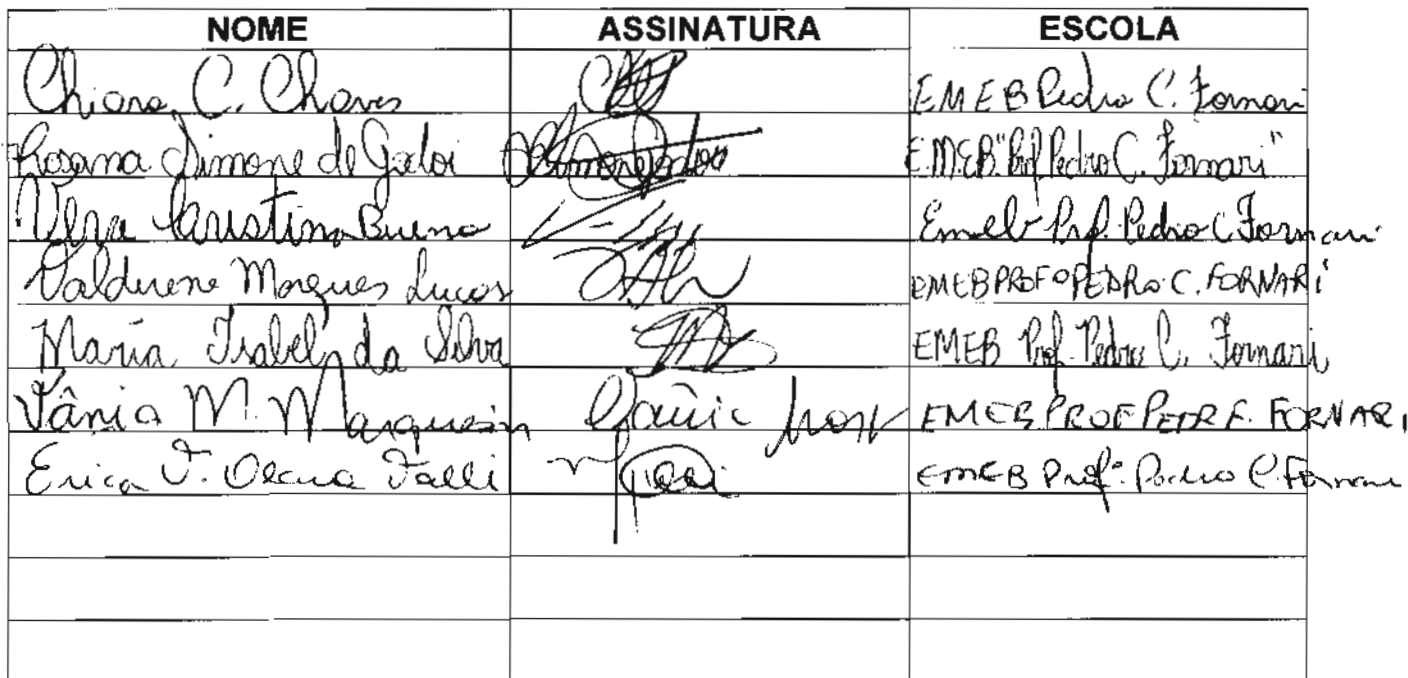 NOME ASSINATURA ESCOLA
Chiara C. Chaves EMEB Pedro C. Fornari
Rosana Simone de Godoi EMEB "Prof Pedro C. Fornari"
Vera Faustino Bueno Emeb Prof. Pedro C Fornari
Valdirene Marques Lucas EMEB PROFº PEDRO C. FORNARI
Maria Isabel da Silva EMEB Prof. Pedro C. Fornari
Tânia M. Marquesin Tânia EMEB PROF PEDR F. FORNARI
Erica T. Talli EMEB Profº Pedro C. Fornari